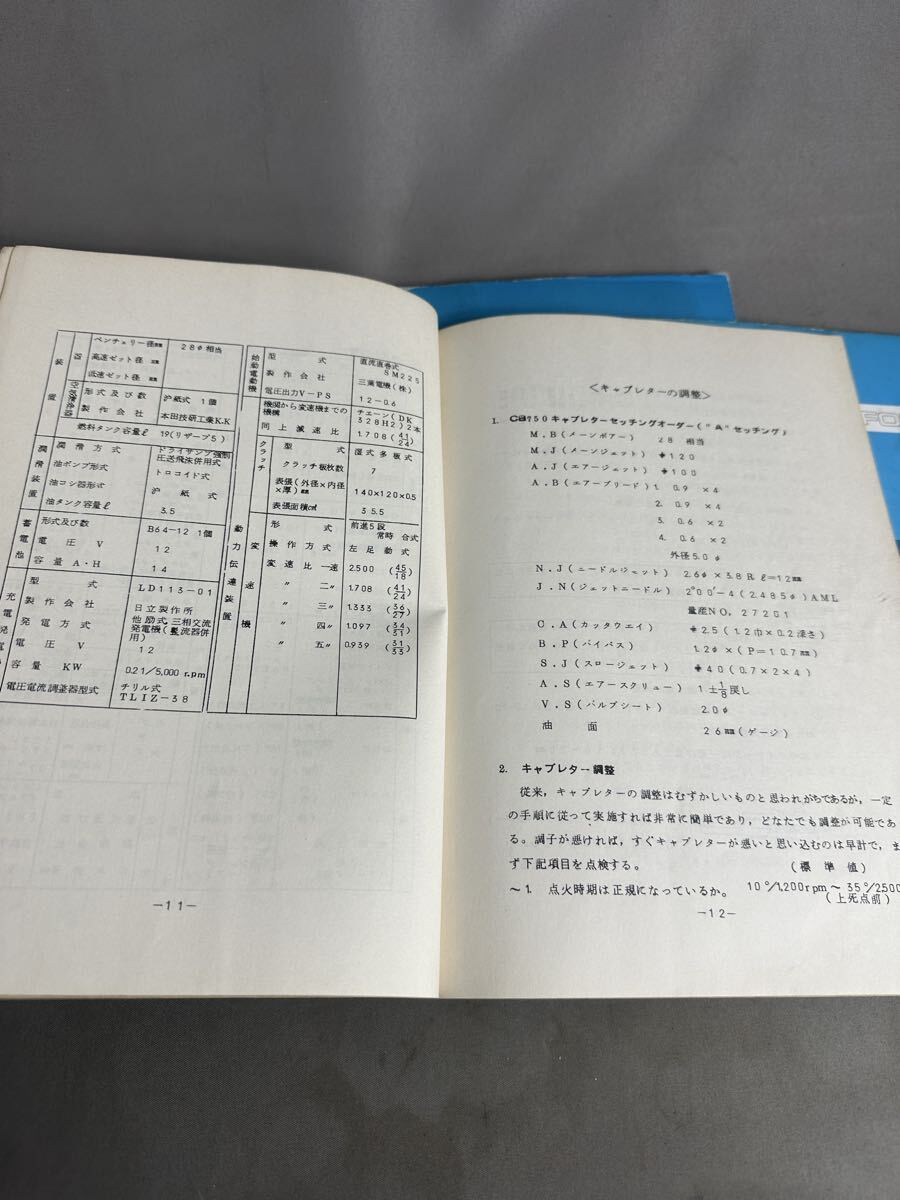 ベンチェリー径㎜ 28φ相当
高速ゼット径 ㎜
低速ゼット径 ㎜
形式及び数 沪紙式 1個
製作会社 本田技研工業K.K
燃料タンク容量ℓ 19(リザーブ5)
潤滑装置
潤滑方式 ドライサンプ強制圧送飛沫併用式
油ポンプ形式 トロコイド式
油コシ器形式 沪紙式
油タンク容量ℓ 3.5
蓄電池
形式及び数 B64-12 1個
電圧 V 12
容量 A・H 14
充電発電
型式 LD113-01
製作会社 日立製作所
発電方式 他励式三相交流発電機(整流器併用)
電圧 V 12
容量 KW 0.21/5,000r.pm
電圧電流調整器型式 チリル式
TLIZ-38
始動電動機
型式 直流直巻式
SM225
製作会社 三葉電機(株)
電圧出力V-PS 12-0.6
機関から変速機までの機構 チェーン(DK328H2)2本
同上減速比 1.708(41/24)
クラッチ
型式 湿式多板式
クラッチ板枚数 7
表張(外径×内径×厚)㎜ 140×120×0.5
表張面積c㎡ 35.5
動力伝達装置
変速機
形式 前進5段
常時 合式
操作方式 左足動式
変速比一速 2.500 (45/18)
〃 二〃 1.708 (41/24)
〃 三〃 1.333 (36/27)
〃 四〃 1.097 (34/31)
〃 五〃 0.939 (31/33)
-11-
<キャブレターの調整>
1. CB750キャブレターセッチングオーダー("A"セッチング)
M.B(メーンボアー) 28 相当
M.J(メーンジェット) #120
A.J(エアージェット) #100
A.B(エアーブリード) 1. 0.9 ×4
2. 0.9 ×4
3. 0.6 ×2
4. 0.6 ×2
外径5.0φ
N.J(ニードルジェット) 2.6φ×3.8R ℓ=12㎜
J.N(ジェットニードル) 2°00'-4(2.485φ)AML
量産NO, 27201
C.A(カッタウエイ) #2.5(1.2巾×0.2深さ)
B.P(バイパス) 1.2φ×(P=10.7㎜)
S.J(スロージェット) #40(0.7×2×4)
A.S(エアースクリュー) 1±1/8戻し
V.S(バルブシート) 2.0φ
油面 26㎜(ゲージ)
2. キャブレター調整
従来,キャブレターの調整はむずかしいものと思われがちであるが,一定
の手順に従って実施すれば非常に簡単であり,どなたでも調整が可能であ
る。調子が悪ければ,すぐキャブレターが悪いと思い込むのは早計で,ま
ず下記項目を点検する。 (標準値)
~1. 点火時期は正規になっているか。 10°/1,200rpm~35°/2,500
(上死点前)
-12-